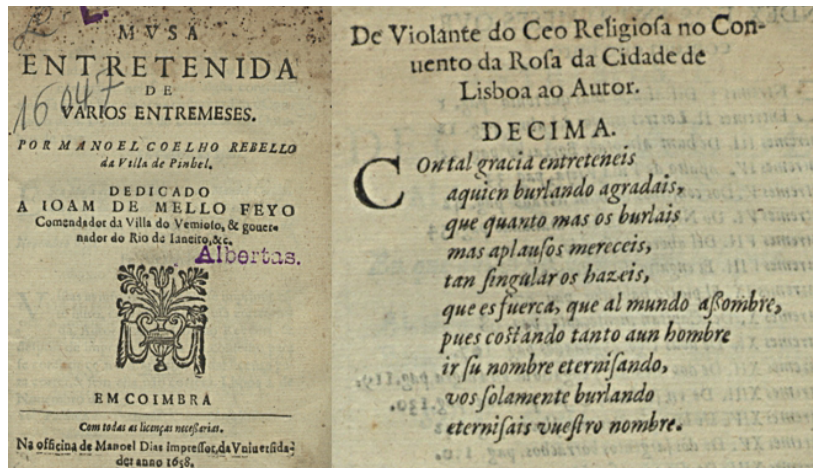 MVSA
ENTRETENIDA
DE
VARIOS ENTREMESES.
POR MANOEL COELHO REBELLO
da Villa de Pinhel.
DEDICADO
A IOAM DE MELLO FEYO
Comendador da Villa do Vemioso, & gouer-
nador do Rio de Ianeiro, &c.
Albertas.
16047
EM COIMBRA
Com todas as licenças necessarias.
Na officina de Manoel Dias Impressor, da Vniuersida-
de: anno 1658.
De Violante do Ceo Religioſa no Con-
uento da Roſa da Cidade de
Lisboa ao Autor.
DECIMA.
Con tal gracia entreteneis
aquien burlando agradais,
que quanto mas os burlais
mas aplauſos mereceis,
tan ſingular os hazeis,
que es fuerca, que al mundo aſſombre,
pues coſtando tanto aun hombre
ir ſu nombre eterniſando,
vos ſolamente burlando
eterniſais vueſtro nombre.